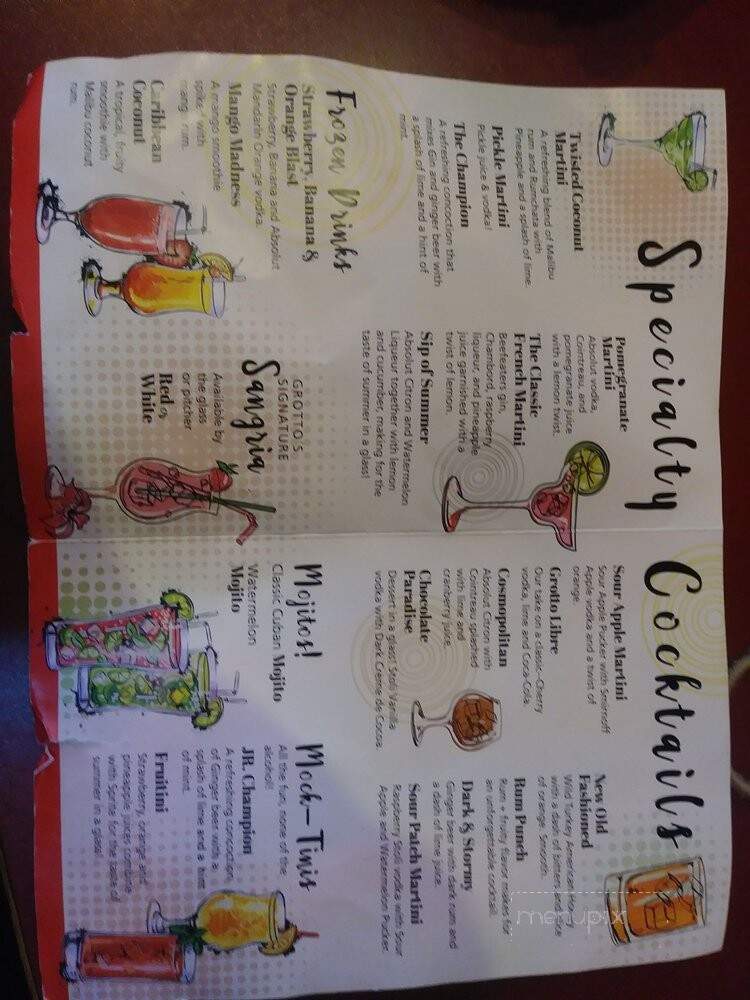 Specialty Cocktails
Twisted Coconut
Martini
A refreshing blend of Malibu
rum and Rumchata with
Pineapple and a splash of lime.
Pickle Martini
Pickle juice & vodka!
The Champion
A refreshing concoction that
mixes Gin and ginger beer with
a splash of lime and a hint of
mint.
Pomegranate
Martini
Absolut vodka,
Cointreau, and
pomegranate juice
with a lemon twist.
The Classic
French Martini
Beefeater gin,
Chambord, raspberry
liqueur, and pineapple
juice garnished with a
twist of lemon.
Sip of Summer
Absolut Citron and Watermelon
Liqueur together with lemon
and cucumber, making for the
taste of summer in a glass!
Sour Apple Martini
Sour Apple Pucker with Smirnoff
Apple vodka and a twist of
orange.
Grotto Libre
Our take on a classic-Cherry
vodka, lime and Coca-Cola.
Cosmopolitan
Absolut Citron with
Cointreau splashed
with lime and
cranberry juice.
Chocolate
Paradise
Dessert in a glass! Stoli Vanilla
vodka with Dark Crème de Cocoa.
New Old
Fashioned
Wild Turkey American Honey
with a dash of bitters and slice
of orange. Smooth.
Rum Punch
Rum + fruity flavor makes for
an unforgettable cocktail.
Dark & Stormy
Ginger beer with dark rum and
a dash of lime juice.
Sour Patch Martini
Raspberry Stoli vodka with Sour
Apple and Watermelon Pucker.
Frozen Drinks
Strawberry, Banana &
Orange Blast
Strawberry, Banana and Absolut
Mandarin Orange vodka.
Mango Madness
A mango smoothie
spiked with
mango rum.
Caribbean
Coconut
A tropical, fruity
smoothie with
Malibu coconut
rum.
GROTTO'S
SIGNATURE
Sangria
Available by
the glass
or pitcher
Red or
White
Mojitos!
Classic Cuban Mojito
Watermelon
Mojito
Mock-Tinis
All the fun, none of the
alcohol!
JR. Champion
A refreshing concoction
of Ginger beer with a
splash of lime and a hint
of mint.
Fruitini
Strawberry, orange and
pineapple juices combine
with Sprite for the taste of
summer in a glass!
menupix